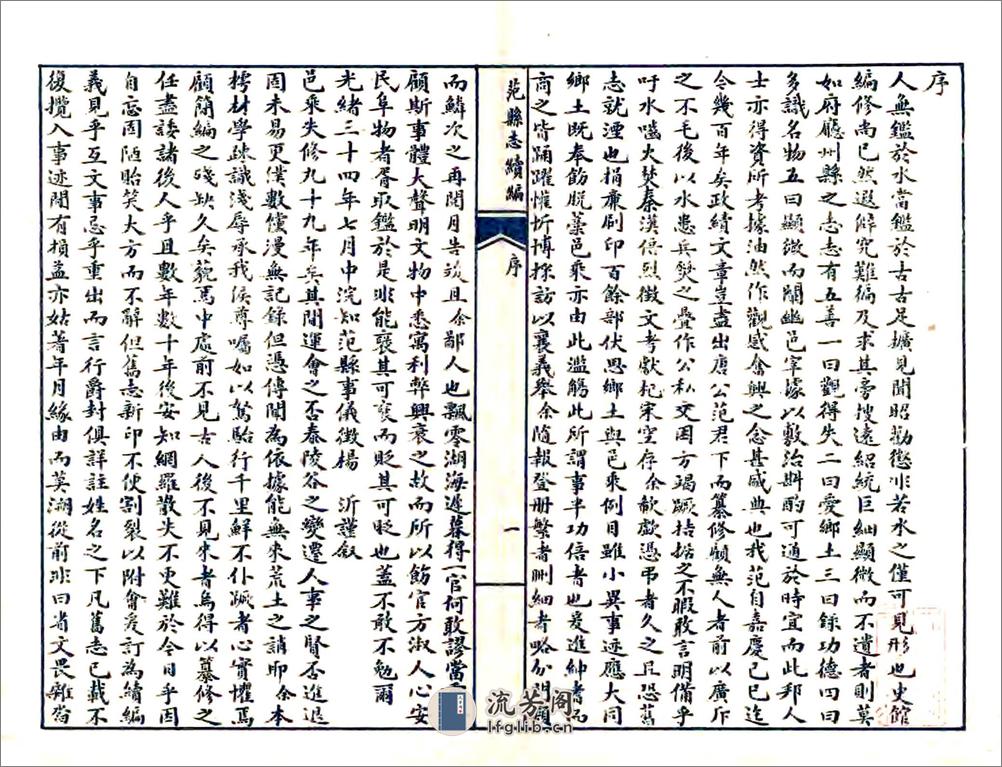 序
人無鑑於水當鑑於古古足擴見聞昭勸懲非若水之僅可見形也史館
編修尚已然遐僻究難徧及求其旁搜遠紹統巨細顯微而不遺者則莫
如府廳州縣之志志有五善一曰觀得失二曰愛鄉土三曰錄功德四曰
多識名物五曰顯微而闡幽邑宰據以敷治斟酌可通於時宜而此邦人
士亦得資所考據油然作觀感奮興之念甚盛典也我范自嘉慶己巳迄
今幾百年矣政績文章豈盡出唐公范君下而纂修顧無人者前以廣斥
之不毛後以水患兵燹之疊作公私交困方竭蹶拮据之不暇敢言明備乎
吁水嚙火焚秦漢俉烈徵文考獻杞宋空存余歔欷憑弔者久之且恐舊
志就湮也捐廉刷印百餘部伏思鄉土與邑乘例目雖小異事迹應大同
鄉土既奉飭脫藁邑乘亦由此濫觴此所謂事半功倍者也爰進紳耆而
商之皆踴躍懽忻博採訪以襄義舉余隨報登冊繁者刪細者略分門
范縣志續編
序
一
而鱗次之再閱月告竣且余鄙人也飄零湖海遲暮得一官何敢謬當
顧斯事體大聲明文物中悉寓利弊興衰之故而所以飭官方淑人心安
民阜物者胥取鑑於是非能褒其可褒而貶其可貶也蓋不敢不勉爾
光緒三十四年七月中浣知范縣事儀徵楊 沂謹叙
邑乘失修九十九年矣其間運會之否泰陵谷之變遷人事之賢否進退
固未易更僕數儻漫無記錄但憑傳聞為依據能無來荒土之誚耶余本
樗材學疎識淺辱承我侯尊囑如以駑駘行千里鮮不仆蹶者心實懼焉
顧簡編之殘缺久矣藐焉中處前不見古人後不見來者烏得以纂修之
任盡諉諸後人乎且數年數十年後安知網羅散失不更難於今日乎因
自忘固陋貽笑大方而不辭但舊志新印不便割裂以附會爰訂為續編
義見乎互文事忌乎重出而言行爵封俱詳註姓名之下凡舊志已載不
復攬入事迹間有損益亦姑著年月緣由而莫溯從前非曰省文畏雜沓
流芳阁
lfglib.cn